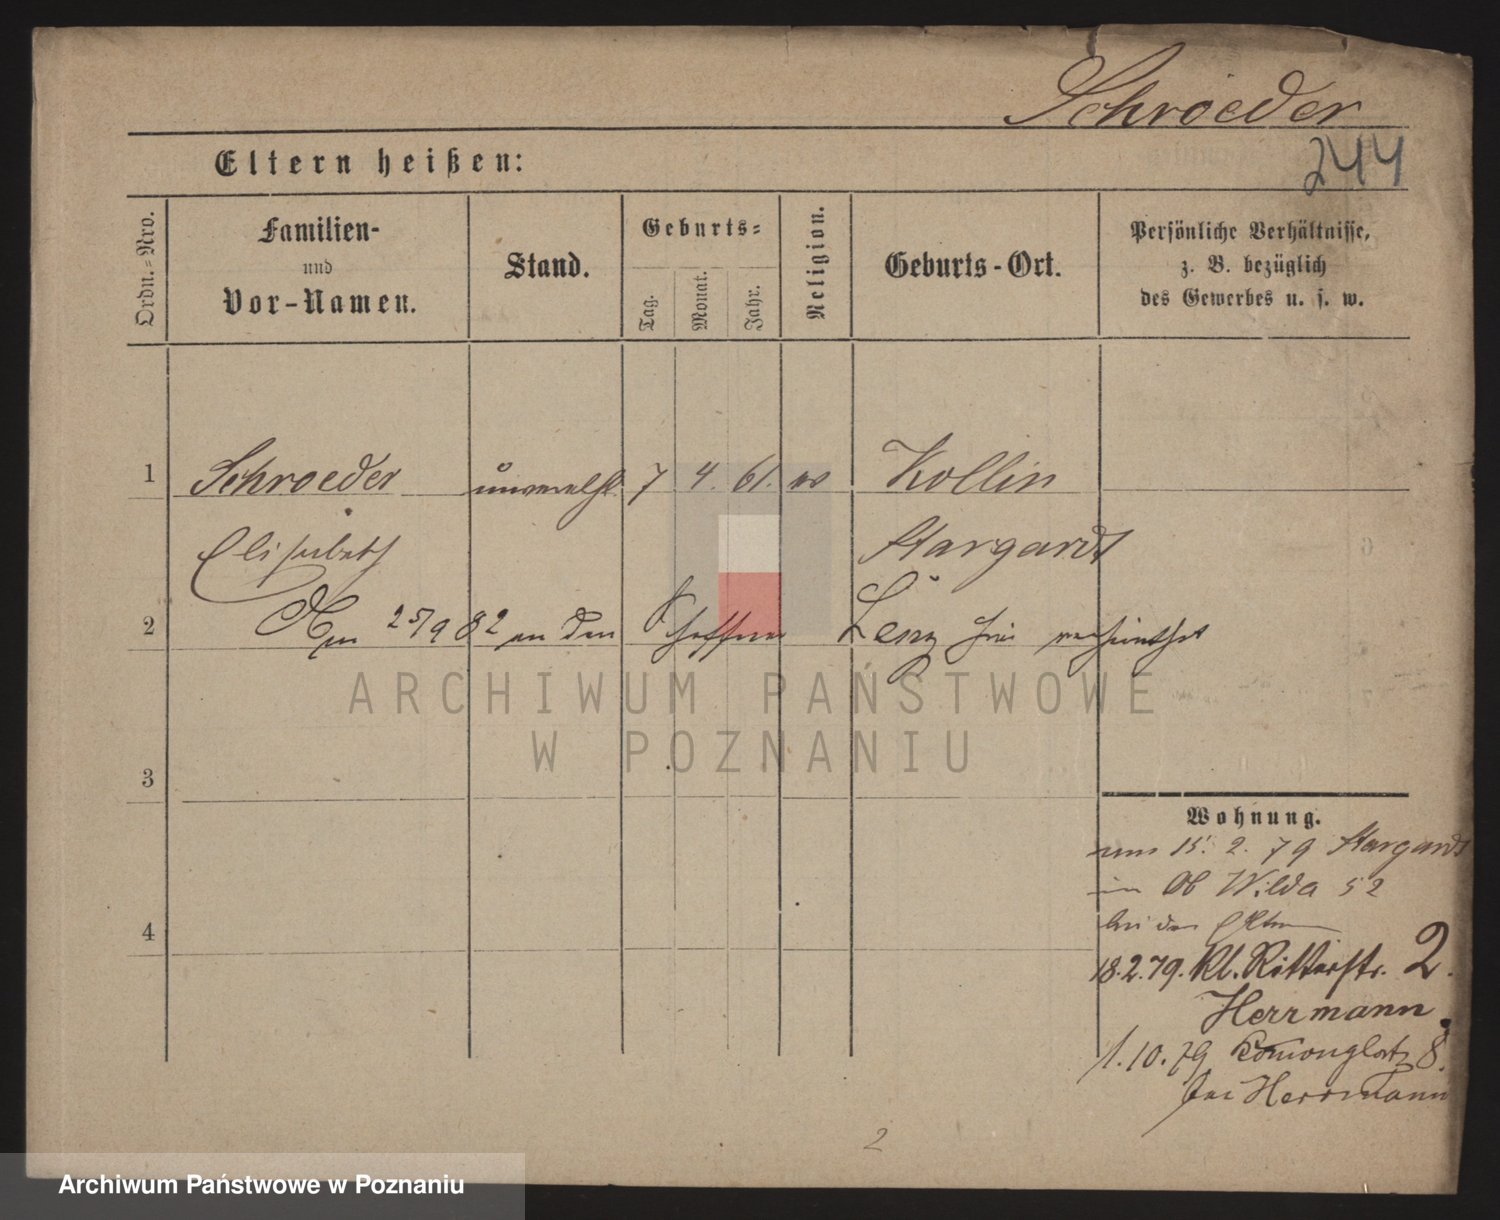 Schroeder
Eltern heißen:
244
Ordn.-Nro.
Familien-
und
Vor-Namen.
Stand.
Geburts-
Tag.
Monat.
Jahr.
Religion.
Geburts-Ort.
Persönliche Verhältnisse,
z. B. bezüglich
des Gewerbes u. s. w.
1 Schroeder unverehl. 7 4. 61. ev Kollin
Elisabeth Stargardt
2 Am 25/9 82 an den Lenz hier verheirathet
3
4
Wohnung.
15. 2. 79 Stargardt
in Ob Wilda 52
bei den Eltern
18.2.79. Kl. Ritterstr. 2.
Herrmann.
1.10.79 8.
bei Herrmann
2
ARCHIWUM PAŃSTWOWE
W POZNANIU
Archiwum Państwowe w Poznaniu